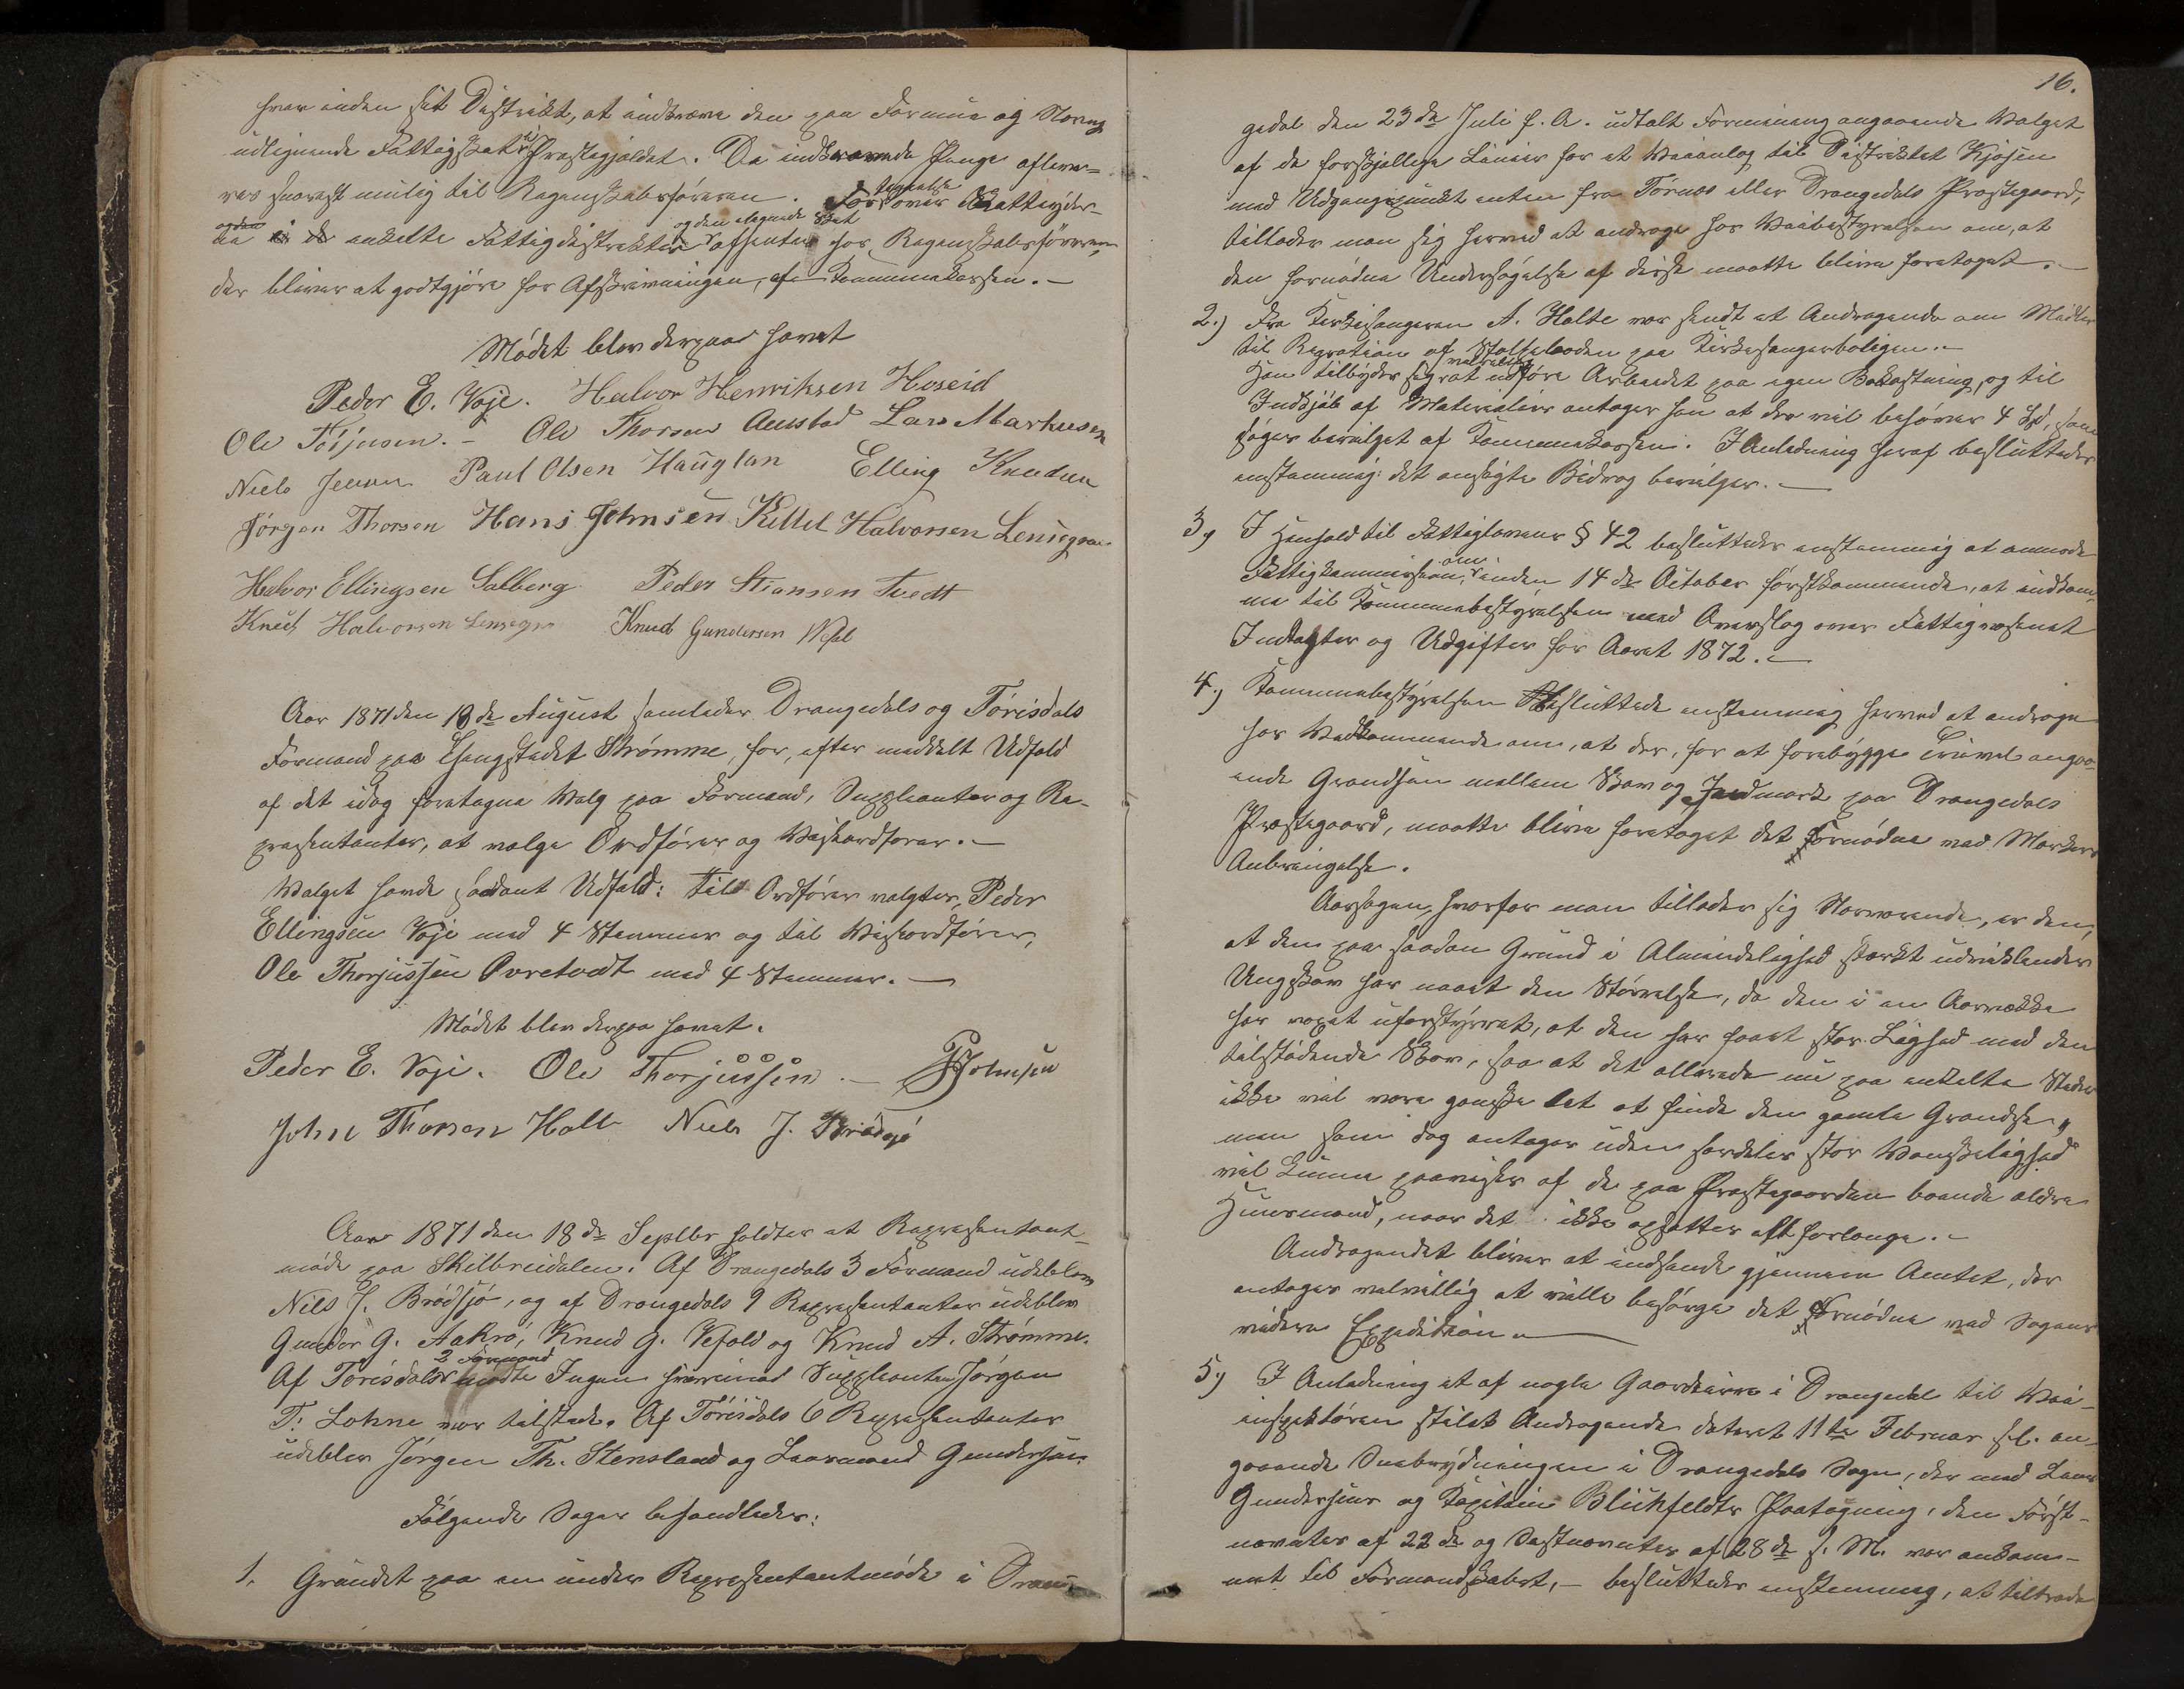 hver inden sit Distrikt, at indkræve den paa Formue og Næring
udlignende Fattigskat i Præstegjeldet. De indkrævede Penge aflever-
res snarest mulig til Regnskabsføreren. Fortegnelse over Skatteyder-
ne i de enkelte Fattigdistrikter og den lagende Skat afhentes hos Regnskabsføreren,
der bliver at godtgjøre for Afskrivningen, af Kommunekassen. —
Mødet blev derpaa hævet
Peder E. Voje. Halvor Henriksen Hoseid
Ole Torjusen. — Ole Thorsen Austad Lars Markusen
Niels Jensen Paul Olsen Hauglan Elling Knudsen
Jørgen Thorsen Hans Johnsen Kittel Halvorsen Lensegrav
Halvor Ellingsen Solberg Peder Stiansen Tvedt
Knud Halvorsen Lensegrav Knud Gundersen Wefal
Aar 1871 den 18de August samledes Drangedals og Tørisdals
Formænd paa Thingstedet Strømme, for, efter meddelt Udfald
af det idag foretagne Valg paa Formænd, Suppleanter og Re-
præsentanter, at vælge Ordfører og Viseordfører. —
Valget havde saadant Udfald: til Ordfører valgtes, Peder
Ellingsen Voje med 4 Stemmer og til Viseordfører,
Ole Thorjussen Øvretvedt med 4 Stemmer. —
Mødet blev derpaa hævet.
Peder E. Voje. Ole Thorjussen. — Johnsen
John Thorsen Holte Niels J. Brødsjø
Aar 1871 den 18de Septbr holdtes et Repræsentant-
møde paa Skilbreidalen. Af Drangedals 3 Formænd udeblev
Nils J. Brødsjø, og af Drangedals 9 Repræsentanter udeblev
Gunder G. Aakre, Knud G. Vefald og Knud A. Strømme.
Af Tørisdals 2 Formænd mødte Ingen hvorimod Suppleanten Jørgen
T. Lohne var tilstede. Af Tørisdals 6 Repræsentanter
udeblev Jørgen Th. Stensland og Laavmand Gundersen.
Følgende Sager behandledes:
1. Grundet paa en under Repræsentantmøde i Dran-
16.
gedal den 23de Juli f. A. udtalt Formening angaaende Valget
af de forskjellige Linier for et Veianlæg til Distriktet Kjøsen
med Udgangspunkt enten fra Tørnes eller Drangedals Præstegaard,
tillader man sig herved at andrage hos Veibestyrelsen om, at
den fornødne Undersøgelse af disse maatte blive foretaget. —
2.) Fra Kirkesangeren A. Holte var sendt et Andragende om Midler
til Repration af Stolpeboden paa Kirkesangerboligen. —
Han tilbyder sig at udføre Arbeidet paa egen Bekostning, og til
Indkjøb af Materialier antager han at der vil behøves 4 Spd, som
søges bevilget af Kommunekassen. I Anledning heraf besluttedes
enstemmig: det ansøgte Bidrag bevilges. —
3, I Henhold til Fattiglovens § 42 besluttedes enstemmig at anmode
Fattigkommissionen, om inden 14de October førstkommende, at indkom-
me til Kommunebestyrelsen med Overslag over Fattigvæsenet
Indtægter og Udgifter for Aaret 1872. —
4.) Kommunebestyrelsen besluttede enstemmig herved at andrage
hos Vedkommende om, at der, for at forebygge Tvivl angaa-
ende Grændsen mellem Skov og Jndmark paa Drangedals
Præstegaard, maatte blive foretaget det fornødne med Merkers
Anbringelse.
Aarsagen, hvorfor man tillader sig Nærværende, er den,
at den paa saadan Grund i Almindelighed stærkt udviklende
Ungskov har naaet den Størrelse, da den i en Aarrække
har voxet uforstyrret, at den har faaet stor Lighed med den
tilstødende Skov, saa at det allerede nu paa enkelte Steder
ikke vil være ganske let at finde den gamle Grændse,
men som dog antages uden særdeles stor Vanskelighed
vil kunne paavises af de paa Præstegaarden boende ældre
Huusmænd, naar det ikke opsættes alt forlænge. —
Andragendet bliver at indsende gjennem Amtet, der
antages velvillig at ville besørge det Fornødne med Sagens
videre Expedition. —
5, I Anledning et af nogle Gaardeiere i Drangedal til Vei-
inspektøren stilet Andragende dateret 11te Februar f. l. an-
gaaende Snebrydningen i Drangedals Sogn, der med Lens
Gundersens og Kapitain Blichfeldts Paategning, den Først-
nævntes af 22de og Sidstnævntes af 28de f. M. var ankom-
met til Formandskabet, — besluttedes enstemmig, at tiltræde